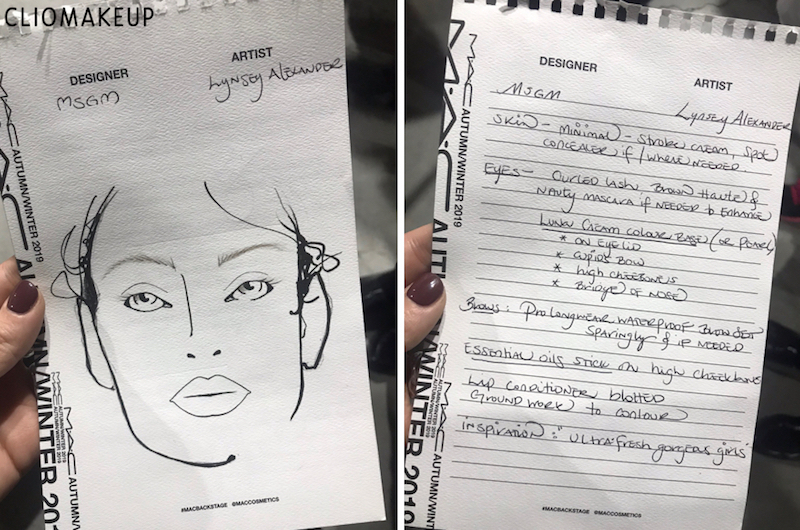 CLIOMAKEUP
DESIGNER
ARTIST
MSGM
Lynsey Alexander
MAC AUTUMN/WINTER 2019
#MACBACKSTAGE @MACCOSMETICS
DESIGNER
ARTIST
MSGM
Lynsey Alexander
SKIN - MINIMAL - STROBE CREAM, SPOT
CONCEALER IF / WHERE NEEDED.
EYES - CURLED LASH, BROWN HAUTE &
NAUTY MASCARA IF NEEDED to ENHANCE
LUNA CREAM COLOUR BASE (OR PEARL)
* ON EYELID
* CUPIDS BOW
* high CHEEKBONES
* Bridge OF NOSE
BROWS: PRO LONGWEAR WATERPROOF BROW SET
SPARINGLY & IF NEEDED
ESSENTIAL OILS STICK ON high CHEEKBONE
LIP CONDITIONER blotted
GROUNDWORK to CONTOUR
INSPIRATION: "ULTRA fresh gorgeous girls"
MAC AUTUMN/WINTER 2019
#MACBACKSTAGE @MACCOSMETICS